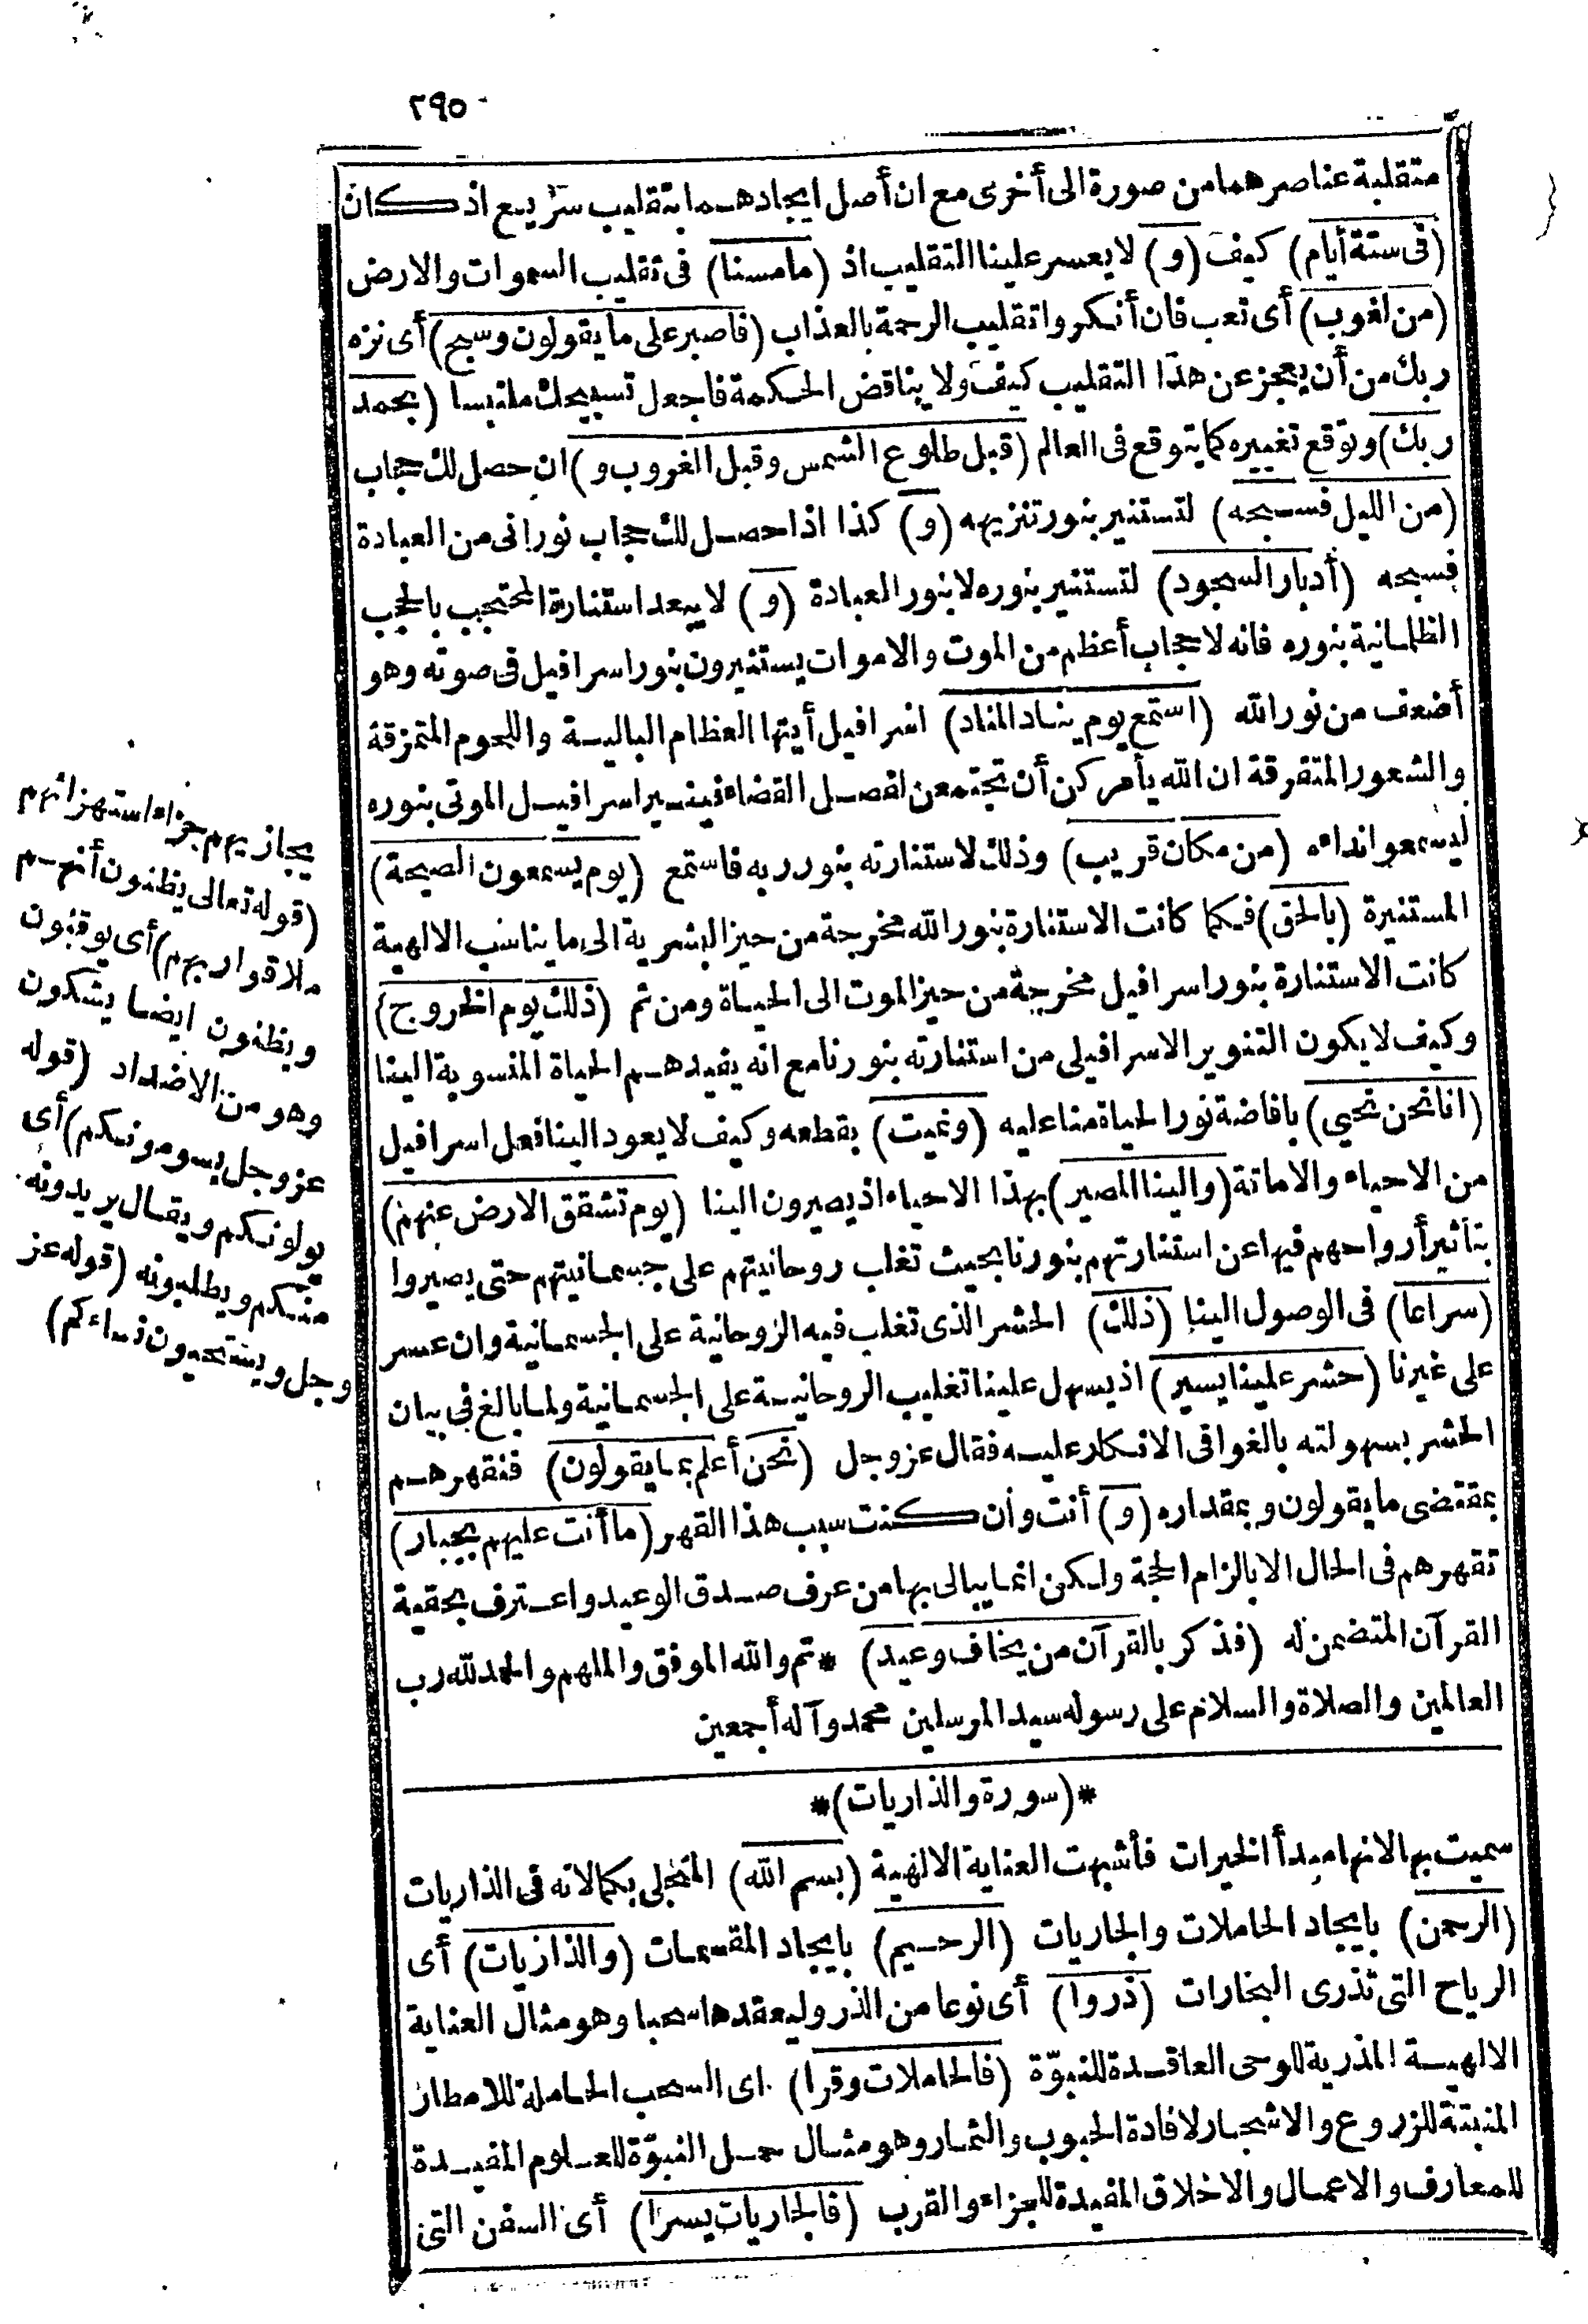 ٢٩٥
متقلبة عناصرهما من صورة الى أخرى مع ان أصل ايجادهما بتقليب سريع اذ كان
(فى ستة أيام) كيف (و) لا يعسر علينا التقليب اذ (مامسنا) فى تقليب السموات والارض
(من لغوب) أى تعب فان أنكروا تقليب الرحمة بالعذاب (فاصبر على ما يقولون وسبح) أى نزه
ربك من أن يعجز عن هذا التقليب كيف ولا يناقض الحكمة فاجعل تسبيحك ملتبسا (بحمد
ربك) وتوقع تغييره كما يتوقع فى العالم (قبل طلوع الشمس وقبل الغروب و) ان حصل لك حجاب
(من الليل فسبحه) لتستنير بنور تنزيهه (و) كذا اذا حصل لك حجاب نورانى من العبادة
فسبحه (أدبار السجود) لتستنير بنوره لا بنور العبادة (و) لا يبعد استنارة المحتجب بالحجب
الظلمانية بنوره فانه لا حجاب أعظم من الموت والاموات يستنيرون بنور اسرافيل فى صوته وهو
أضعف من نور الله (استمع يوم يناد المناد) اسرافيل أيتها العظام البالية واللحوم المتمزقة
والشعور المتفرقة ان الله يأمركن أن تجتمعن لفصل القضاء فينير اسرافيل الموتى بنوره
ليسمعوا نداءه (من مكان قريب) وذلك لاستنارته بنور ربه فاستمع (يوم يسمعون الصيحة)
المستنيرة (بالحق) فكما كانت الاستنارة بنور الله مخرجة من حيز البشرية الى ما يناسب الالهية
كانت الاستنارة بنور اسرافيل مخرجة من حيز الموت الى الحياة ومن ثم (ذلك يوم الخروج)
وكيف لا يكون التنوير الاسرافيلى من استنارته بنورنا مع انه يفيدهم الحياة المنسوبة الينا
(انا نحن نحيي) بافاضة نور الحياة منا عليه (ونميت) بقطعه وكيف لا يعود الينا فعل اسرافيل
من الاحياء والاماتة (والينا المصير) بهذا الاحياء اذ يصيرون الينا (يوم تشقق الارض عنهم)
بتأثير أرواحهم فيها عن استنارتهم بنورنا بحيث تغلب روحانيتهم على جسمانيتهم حتى يصيروا
(سراعا) فى الوصول الينا (ذلك) الحشر الذى تغلب فيه الروحانية على الجسمانية وان عسر
على غيرنا (حشر علينا يسير) اذ يسهل علينا تغليب الروحانية على الجسمانية ولما بالغ فى بيان
الحشر بسهولته بالغوا فى الانكار عليه فقال عز وجل (نحن أعلم بما يقولون) فنقهرهم
بمقتضى ما يقولون وبمقداره (و) أنت وان كنت سبب هذا القهر (ما أنت عليهم بجبار)
تقهرهم فى الحال الا بالزام الحجة ولكن انما يبالى بها من عرف صدق الوعيد واعترف بحقية
القرآن المتضمن له (فذكر بالقرآن من يخاف وعيد) * تم والله الموفق والملهم والحمد لله رب
العالمين والصلاة والسلام على رسوله سيد المرسلين محمد وآله أجمعين
*(سورة والذاريات)*
سميت بها لانها مبدأ الخيرات فأشبهت العناية الالهية (بسم الله) المتجلى بكمالاته فى الذاريات
(الرحمن) بايجاد الحاملات والجاريات (الرحيم) بايجاد المقسمات (والذاريات) أى
الرياح التى تذرى البخارات (ذروا) أى نوعا من الذر وليعقدها سحبا وهو مثال العناية
الالهية المذرية للوحى العاقدة للنبوّة (فالحاملات وقرا) أى السحب الحاملة للامطار
المنبتة للزروع والاشجار لافادة الحبوب والثمار وهو مثال حمل النبوّة للعلوم المفيدة
للمعارف والاعمال والاخلاق المفيدة للجزاء والقرب (فالجاريات يسرا) أى السفن التى
يجازيهم جزاء استهزائهم
(قوله تعالى يظنون أنهم
ملاقوا ربهم) أى يوقنون
ويظنون ايضا يشكون
وهو من الاضداد (قوله
عز وجل يسومونكم) أى
يولونكم ويقال يريدونه
منكم ويطلبونه (قوله عز
وجل ويستحيون نساءكم)